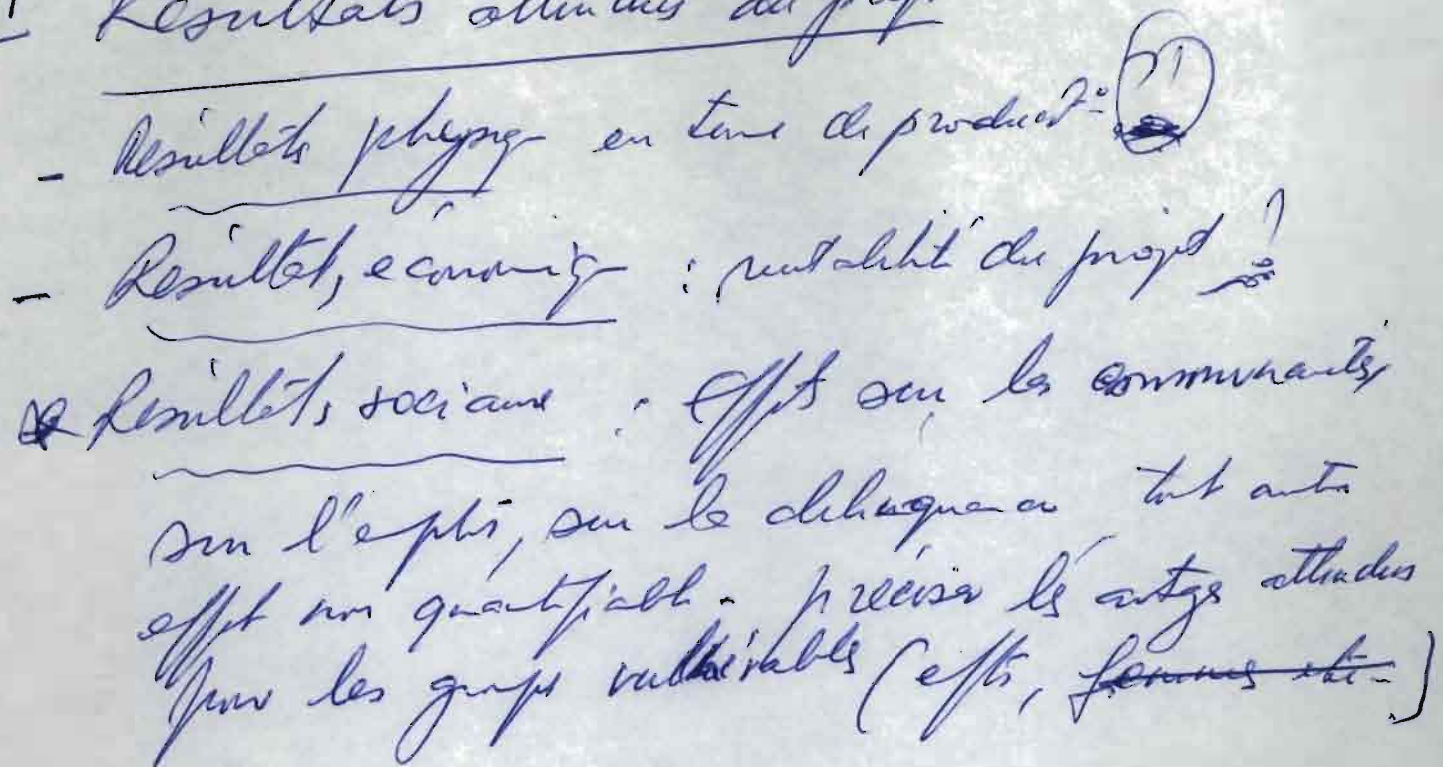 Résultats attendus du projet
- Résultats physiq en terme de product°:
- Résultats économiq : rentabilité du projet ?
Résultats sociaux : effets sur les communautés,
sur l'emploi, sur la délinquance tout autre
effet non quantifiable. préciser les avtges attendus
pour les groupes vulnérables (efts, femmes etc-)